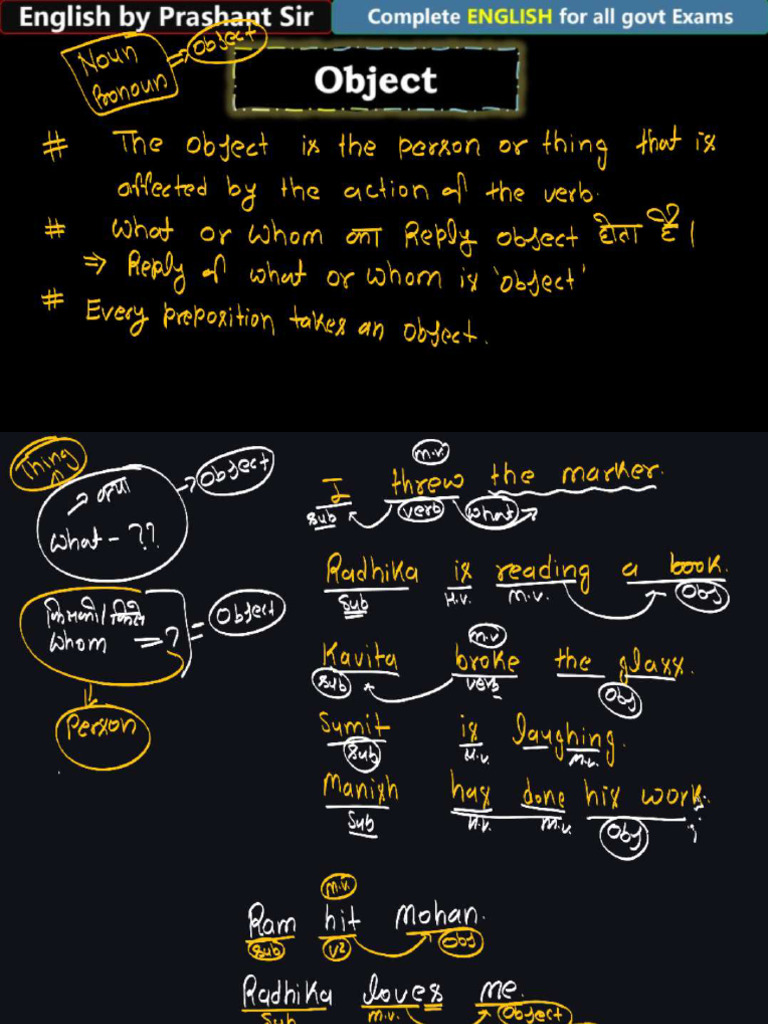 English by Prashant Sir
Complete ENGLISH for all govt Exams
Noun
Pronoun
=> Object
Object
# The object is the person or thing that is
affected by the action of the verb.
# What or Whom का Reply object होता है।
⇒ Reply of what or whom is 'object'
# Every preposition takes an object.
Thing
→ क्या
what - ??
→ Object
किसको/किसे
Whom = ?
= Object
Person
m.v.
I threw the marker.
Sub verb what
Radhika is reading a book.
Sub H.v. M.v. Obj
m.v
Kavita broke the glass.
Sub verb Obj
Sumit is laughing.
Sub H.v. M.v.
Manish has done his work.
Sub H.v. M.v. Obj
M.v.
Ram hit Mohan.
Sub V2 Obj
Radhika loves me.
Sub m.v. Object